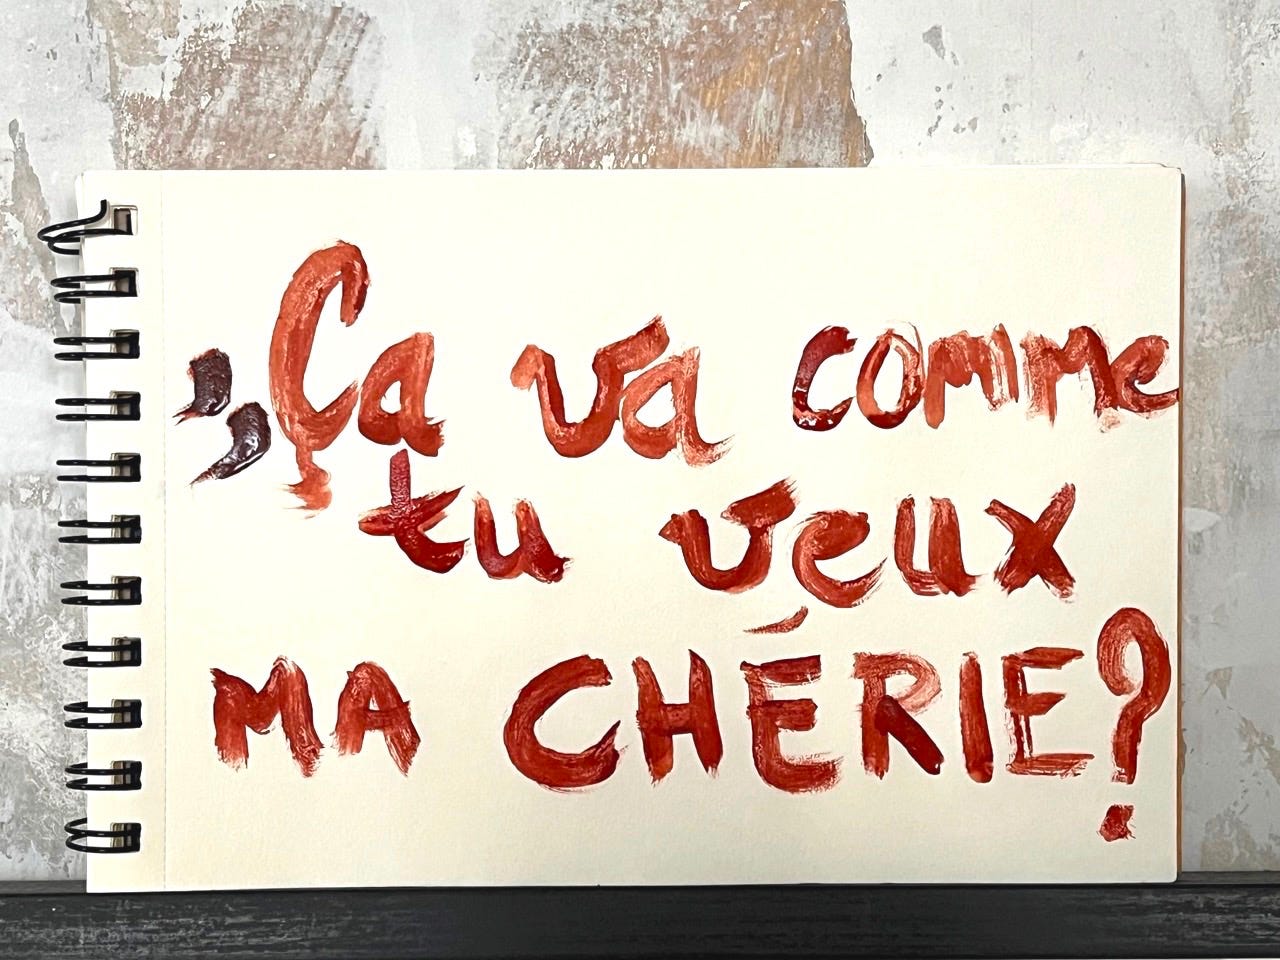 ,,Ça va comme
tu veux
MA CHÉRIE?